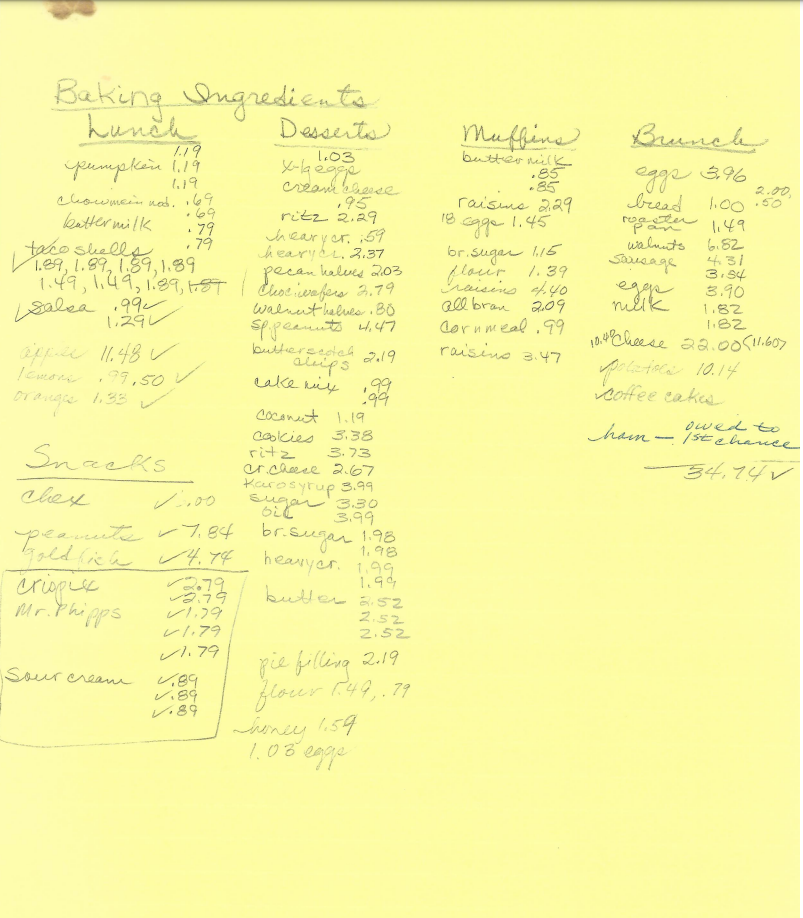 Baking Ingredients
Lunch
1.19
pumpkin 1.19
1.19
chowmein nod. .69
.69
buttermilk .79
.79
taco shells
✓1.89, 1.89, 1.89, 1.89
1.49, 1.49, 1.89, 1.89
✓salsa .99✓
1.29✓
apples 11.48 ✓
lemons .99, .50 ✓
oranges 1.33 ✓
Snacks
chex ✓
peanuts ✓7.84
goldfish ✓4.74
crispix ✓2.79
✓2.79
Mr. Phipps ✓1.79
✓1.79
✓1.79
Sour cream ✓.89
✓.89
✓.89
Desserts
1.03
x-lg eggs
cream cheese
.95
ritz 2.29
heavy cr. .59
heavy cr. 2.37
pecan halves 2.03
choc. wafers 2.79
walnut halves .80
sp. peanuts 4.47
butterscotch
chips 2.19
cake mix .99
.99
coconut 1.19
cookies 3.38
ritz 3.73
cr. cheese 2.67
Karo syrup 3.99
sugar 3.30
oil 3.99
br. sugar 1.98
1.98
heavy cr. 1.99
1.99
butter 2.52
2.52
2.52
pie filling 2.19
flour 1.49, .79
honey 1.59
1.03 eggs
Muffins
buttermilk
.85
.85
raisins 2.29
18 eggs 1.45
br. sugar 1.15
flour 1.39
raisins 4.40
all bran 2.09
cornmeal .99
raisins 3.47
Brunch
eggs 3.96
2.00,
bread 1.00 .50
roaster
pan 1.49
walnuts 6.82
sausage 4.31
3.54
eggs 3.90
milk 1.82
1.82
10.40 cheese 22.00 (11.60)
✓potatoes 10.14
✓coffee cakes
ham — owed to
1st chance
34.74✓